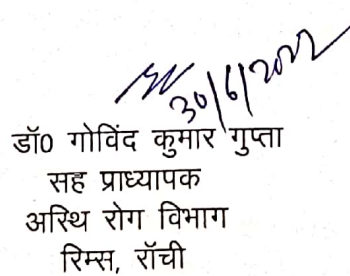 30/6/2022
डॉ0 गोविंद कुमार गुप्ता
सह प्राध्यापक
अस्थि रोग विभाग
रिम्स, राँची